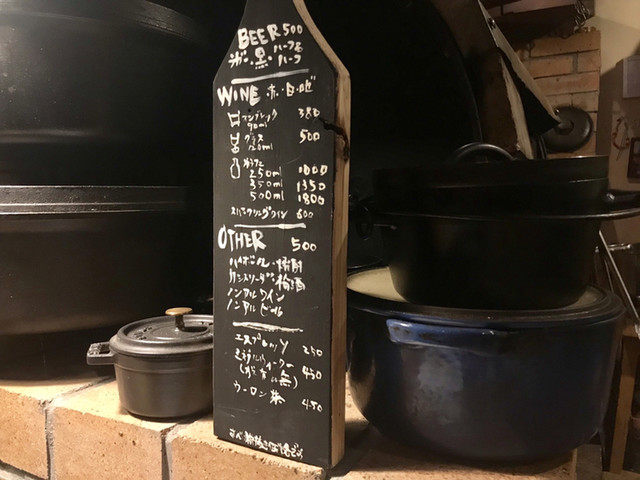 BEER 500
黒・ハーフ&
ハーフ
WINE 赤・白・ロゼ
コンプレック 380
90ml
グラス 500
120ml
250ml 1000
350ml 1350
500ml 1800
スパークリングワイン 600
OTHER 500
ハイボール・焼酎
カシスソーダ・梅酒
ノンアルワイン
ノンアルビール
エスプレッソ 250
ミネラルウォーター 450
無)
ウーロン茶 450